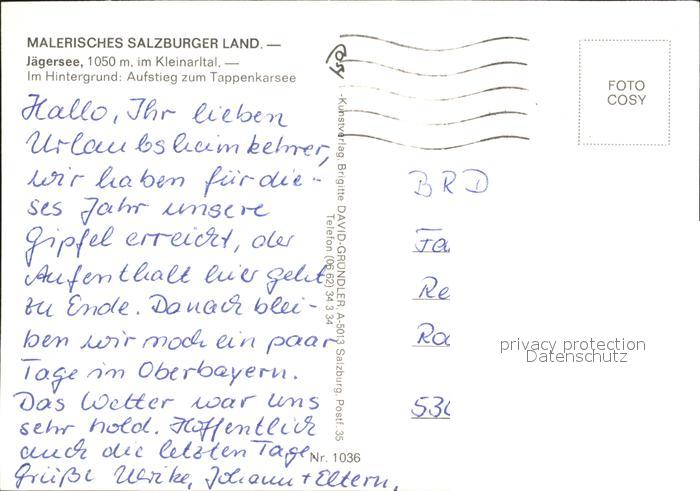 MALERISCHES SALZBURGER LAND. —
Jägersee, 1050 m, im Kleinarltal. —
Im Hintergrund: Aufstieg zum Tappenkarsee
Hallo, Ihr lieben
Urlaubsheimkehrer,
wir haben für die-
ses Jahr unsere
Gipfel erreicht, der
Aufenthalt hier geht
zu Ende. Danach blei-
ben wir noch ein paar
Tage in Oberbayern.
Das Wetter war uns
sehr hold. Hoffentlich
auch die letzten Tage.
Grüße Ulrike, Johann + Eltern.
Kunstverlag, Brigitte DAVID-GRÜNDLER A-5013 Salzburg, Postf. 35
Telefon (06 62) 34 3 34
Nr. 1036
FOTO
COSY
BRD
Fa
Re
Ro
privacy protection
Datenschutz
530